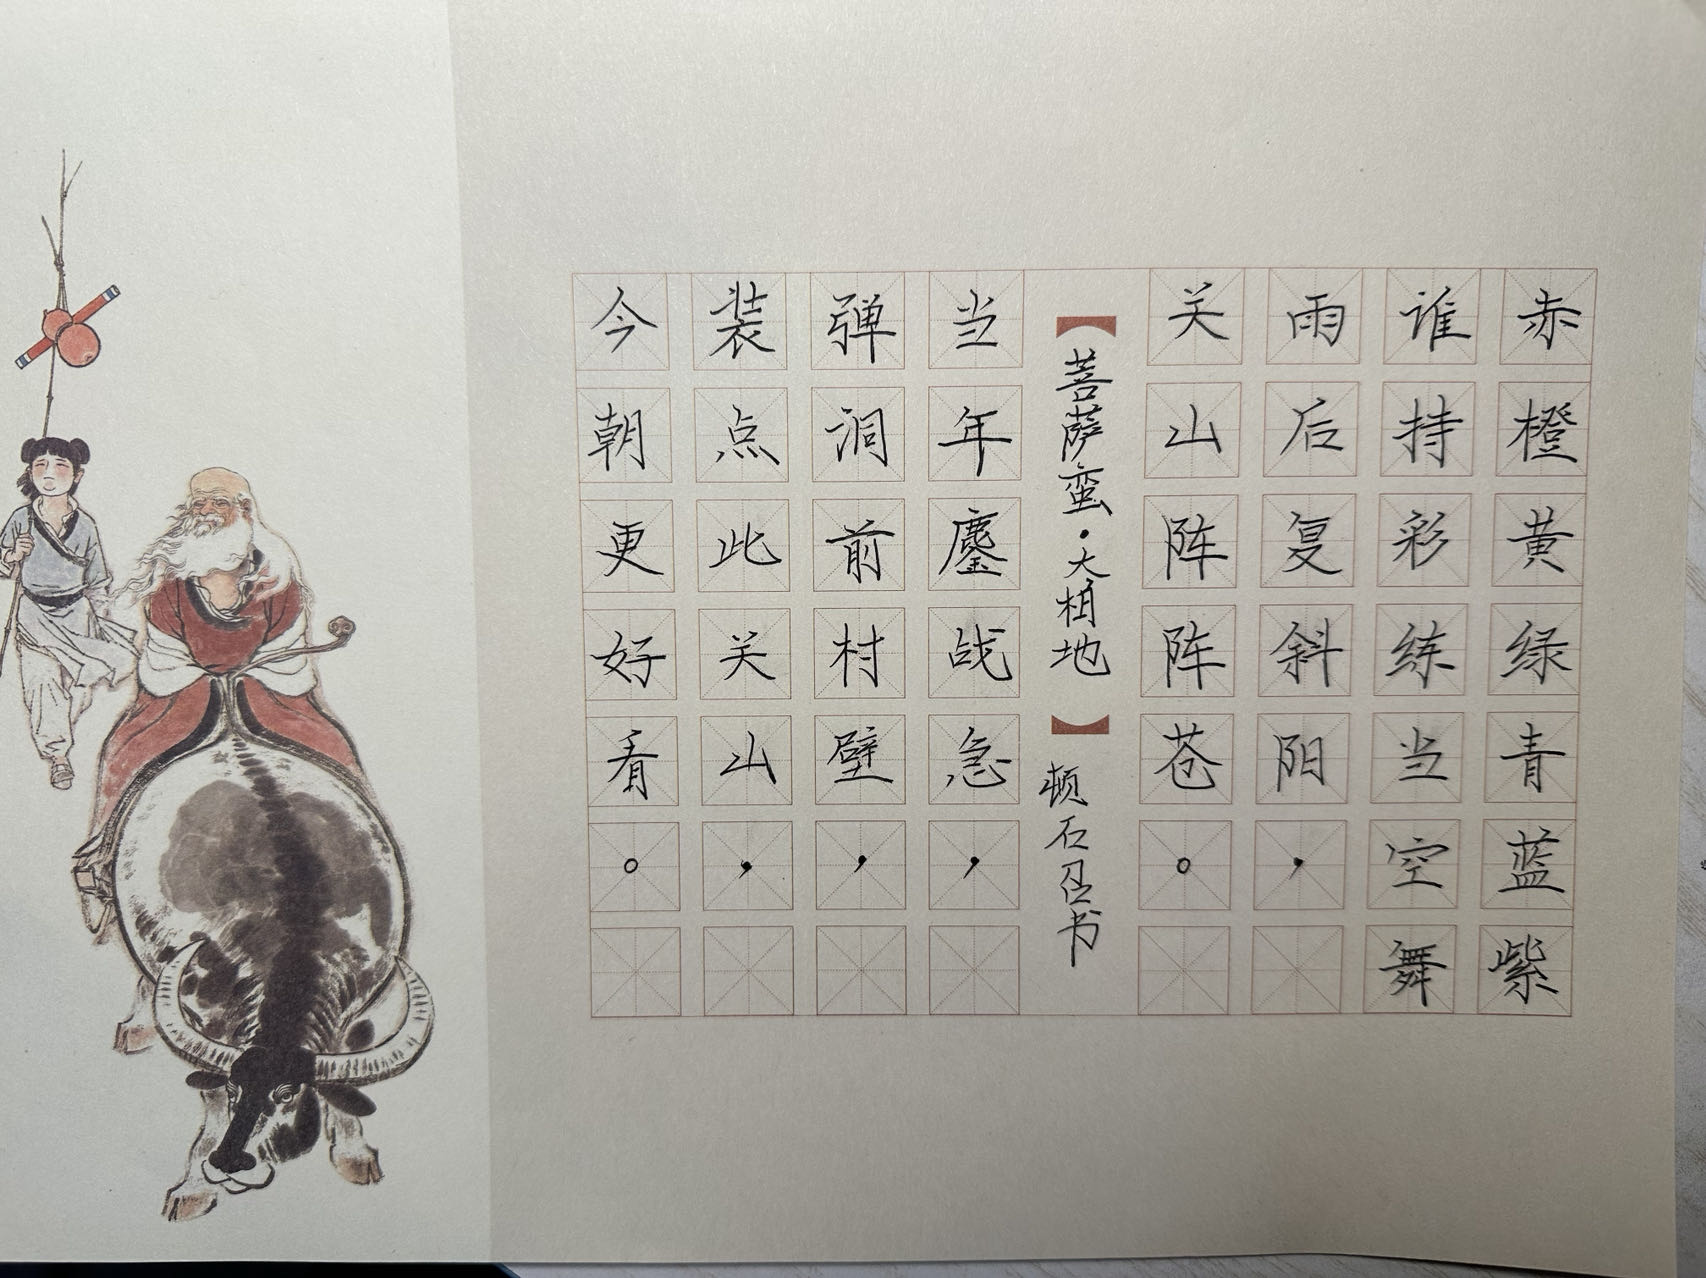 赤橙黄绿青蓝紫
谁持彩练当空舞
雨后复斜阳，
关山阵阵苍。
【菩萨蛮·大柏地】 石 书
当年鏖战急，
弹洞前村壁，
装点此关山，
今朝更好看。